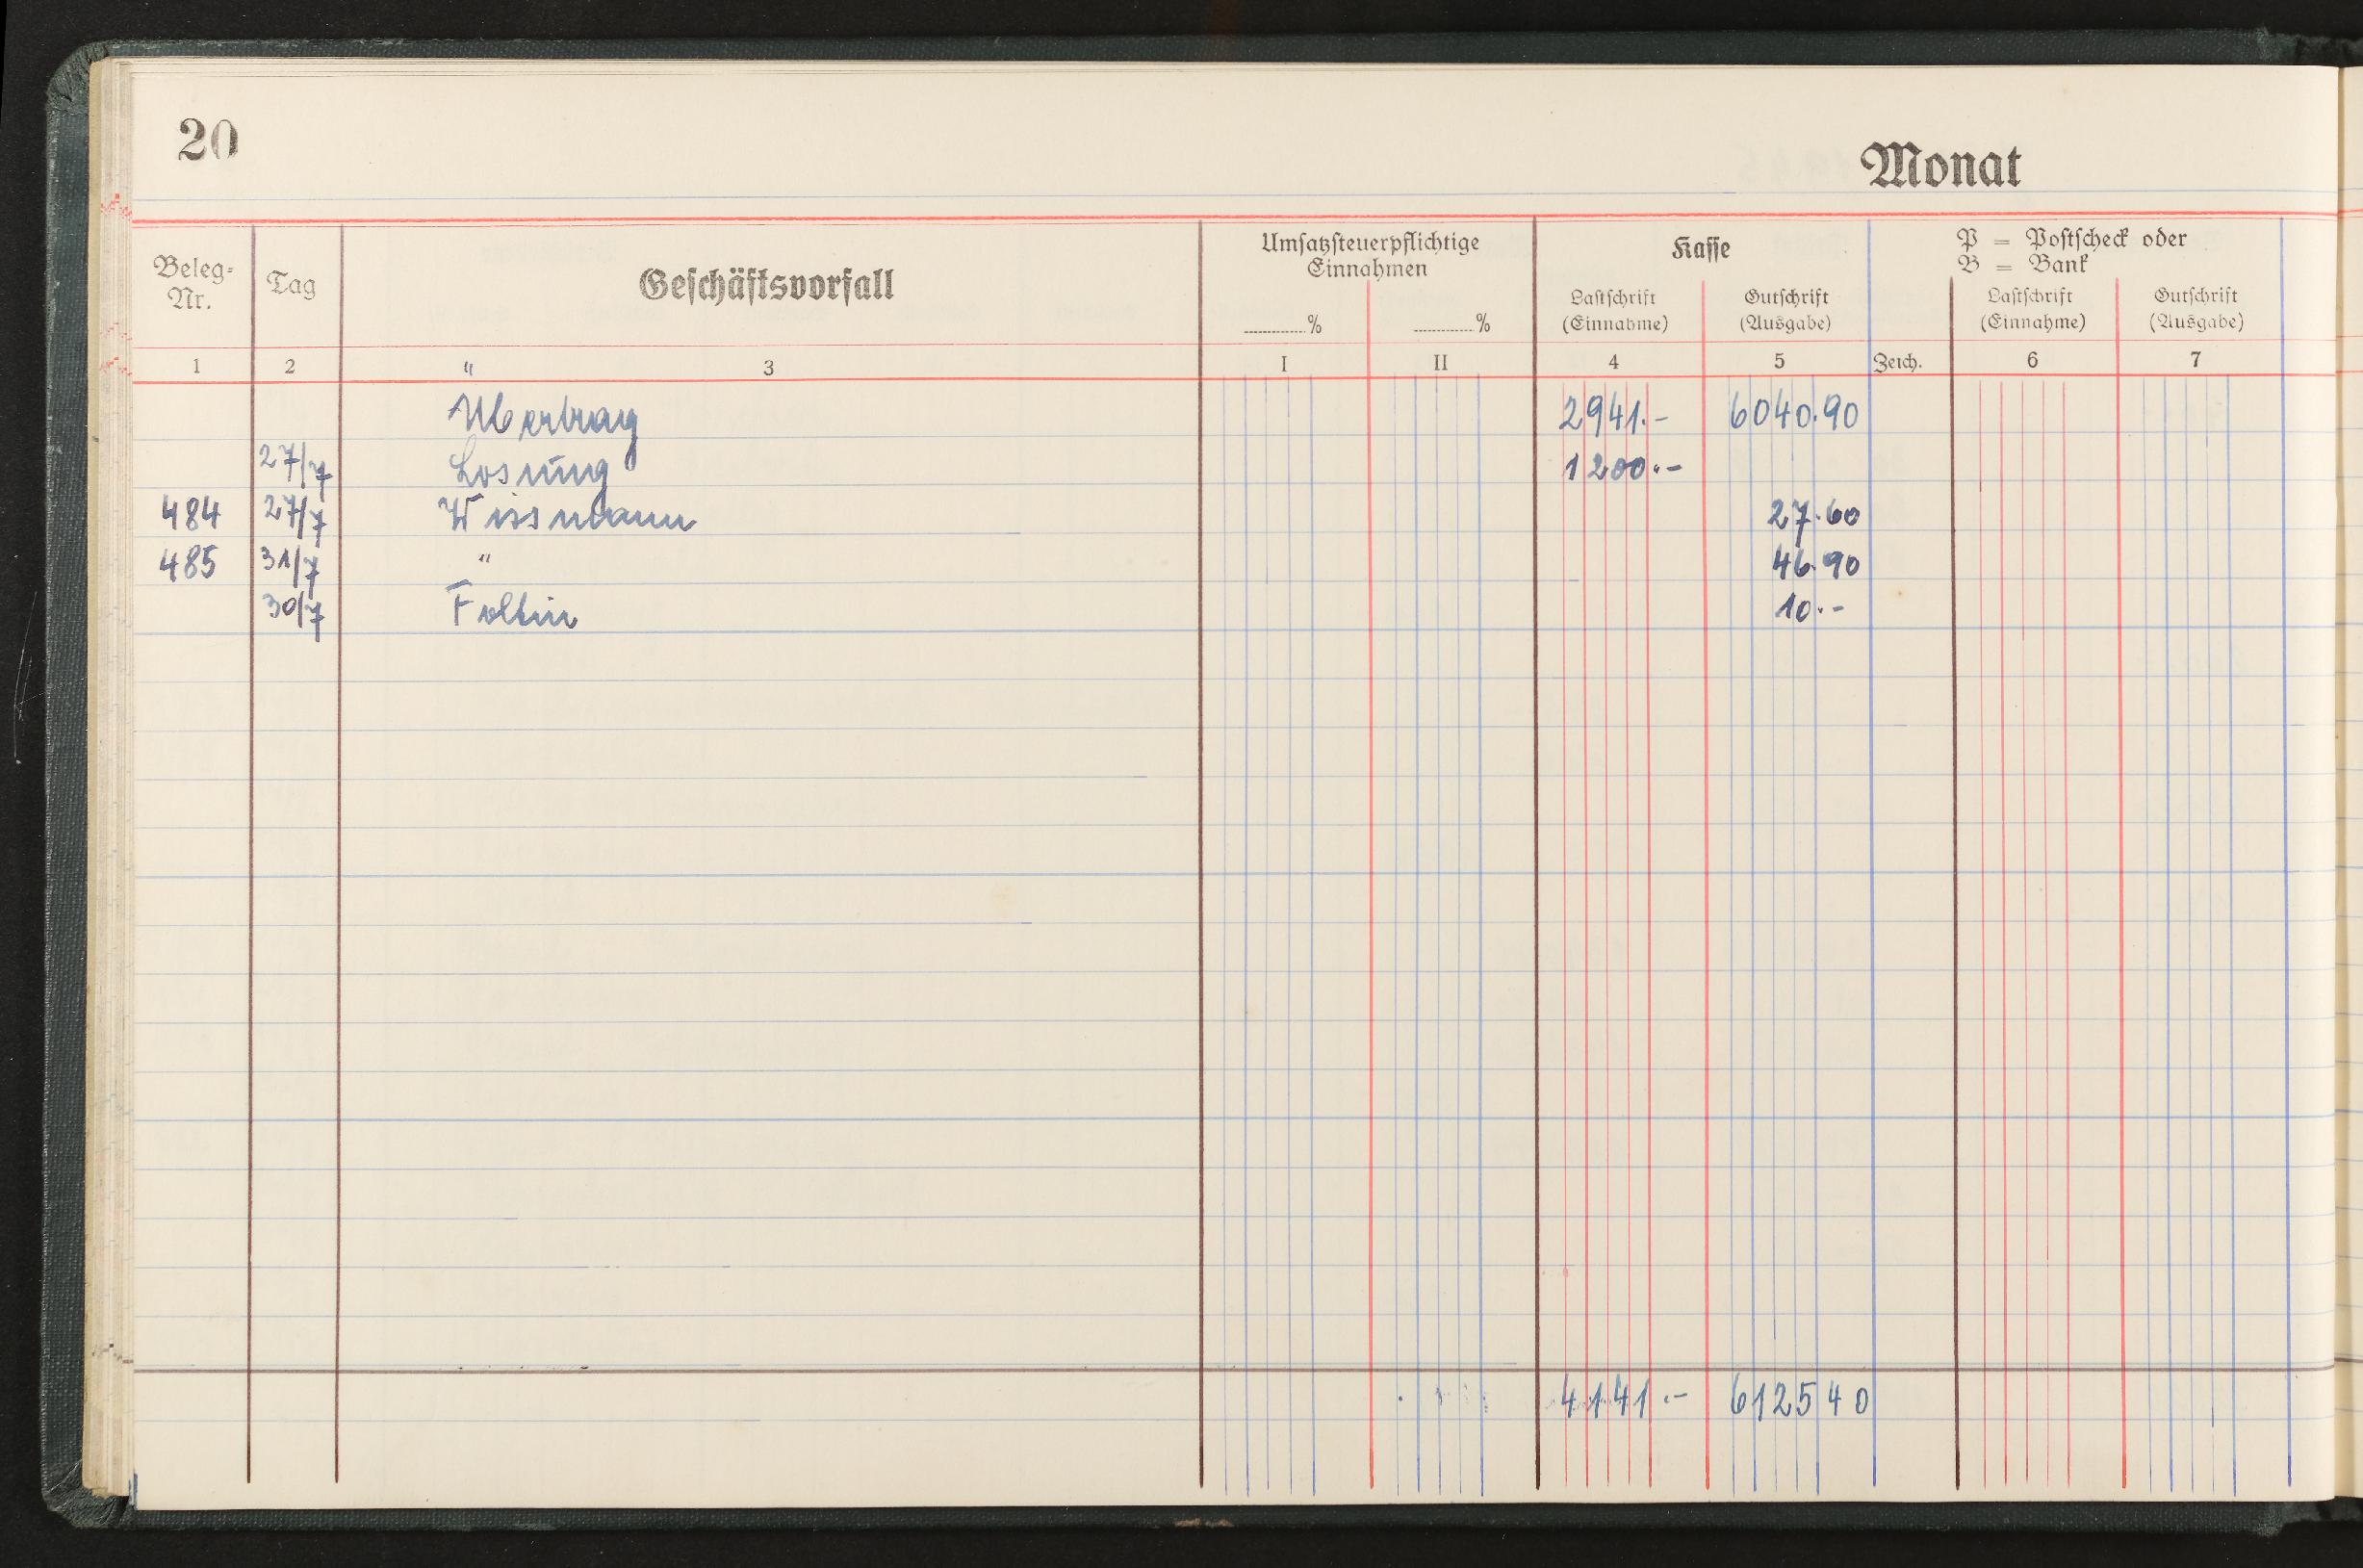 20
Monat
Beleg-
Nr.
Tag
Geschäftsvorfall
Umsatzsteuerpflichtige
Einnahmen
Kasse
P = Postscheck oder
B = Bank
............% ............%
Lastschrift
(Einnahme)
Gutschrift
(Ausgabe)
Lastschrift
(Einnahme)
Gutschrift
(Ausgabe)
1 2 3 I II 4 5 Zeich. 6 7
Übertrag 2941.- 6040.90
27/7 Losung 1200.-
484 27/7 Wissmann 27.60
485 31/7 " 46.90
30/7 Foltin 10.-
4141.- 612540